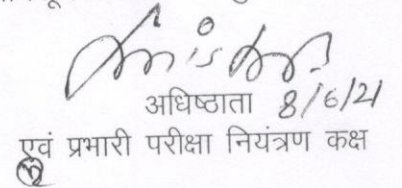 अधिष्ठाता 8/6/21
एवं प्रभारी परीक्षा नियंत्रण कक्ष